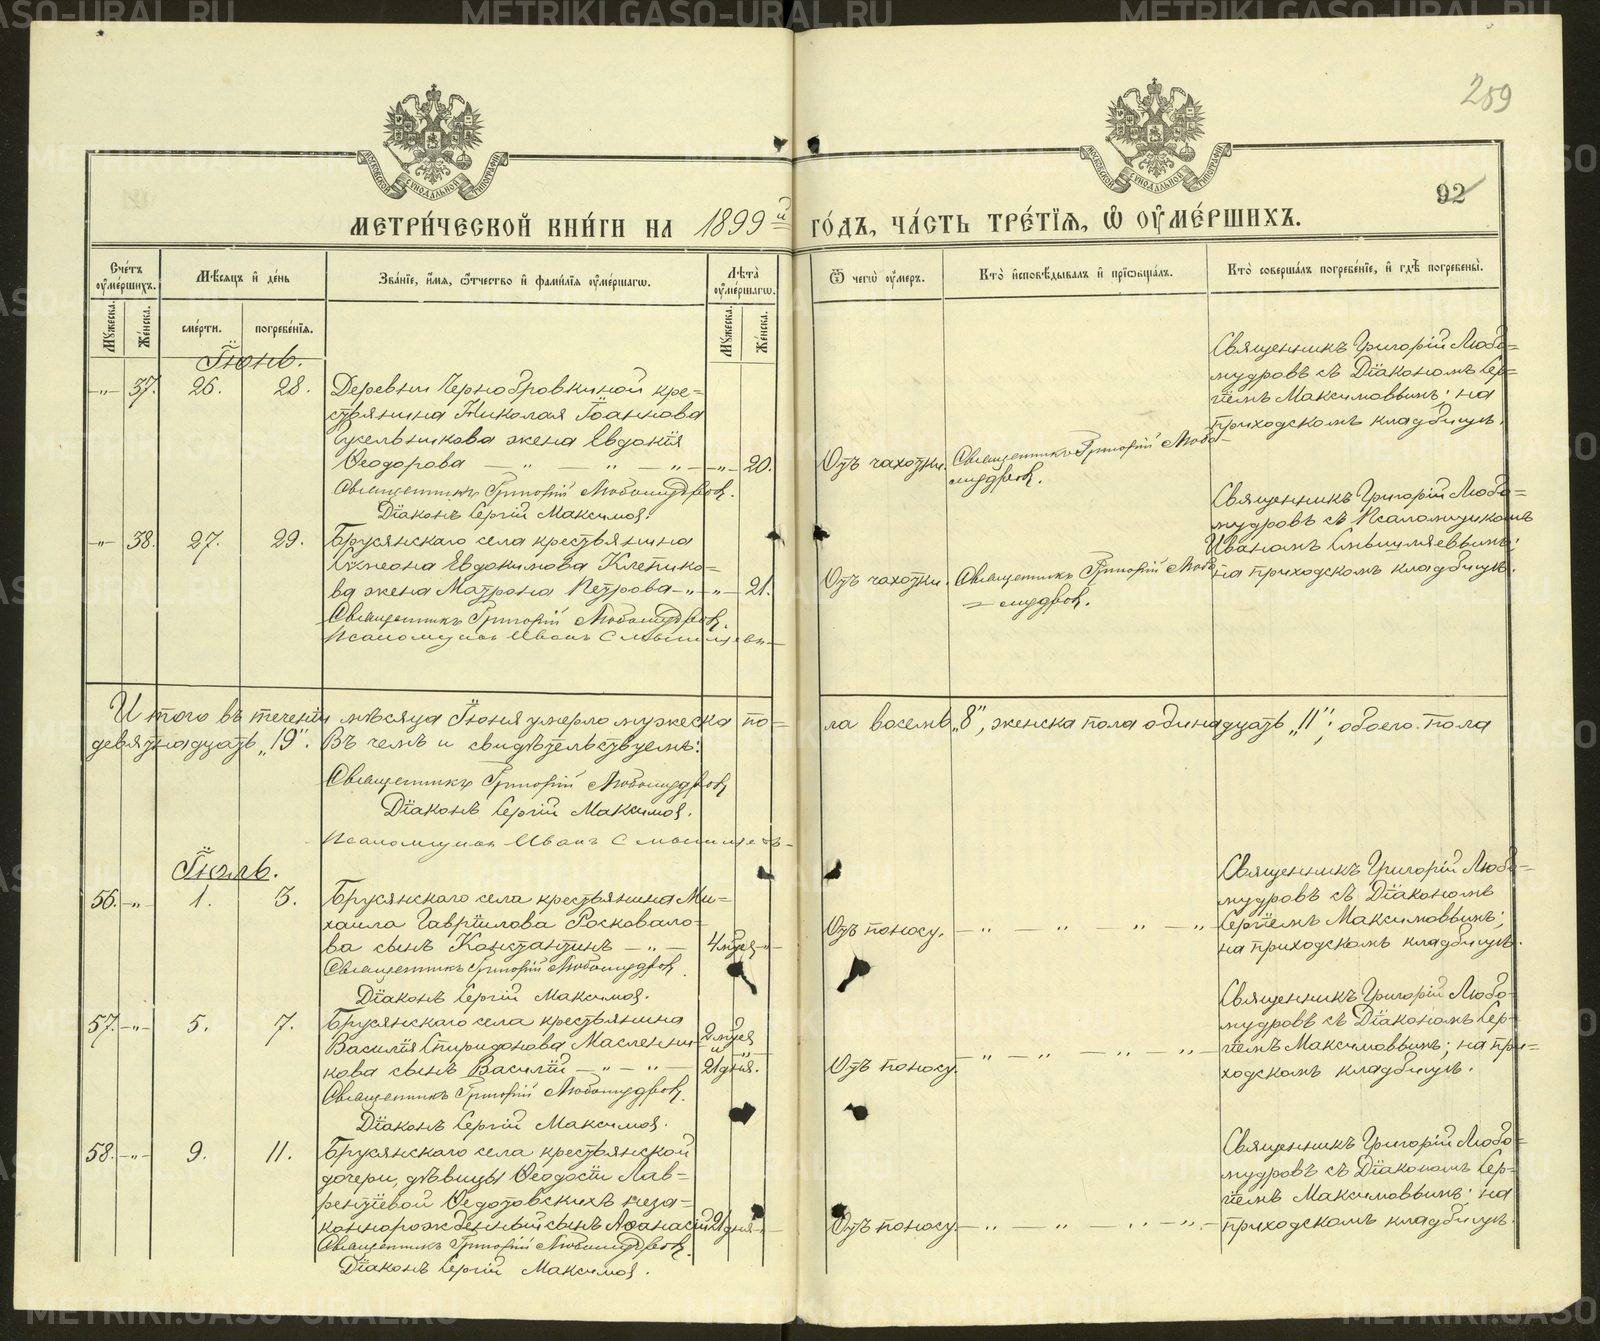 289
МОСКОВСКОЙ СѴНОДАЛЬНОЙ ТИПОГРАФІИ
МОСКОВСКОЙ СѴНОДАЛЬНОЙ ТИПОГРАФІИ
92
МЕТРИ́ЧЕСКОЙ КНИ́ГИ НА 1899й ГО́ДЪ, ЧА́СТЬ ТРЕ́ТЇѦ, Ѽ ОУ҆МЕ́РШИХЪ.
Сче́тъ оу҆ме́ршихъ.
Мѣ́сяцъ и҆ де́нь
Зва́нїе, и҆́мя, ѻ҆́тчество и҆ фами́лїя оу҆ме́ршагѡ.
Лѣ́та оу҆ме́ршагѡ.
Ѿ чегѡ̀ оу҆́меръ.
Кто̀ и҆сповѣ́дывалъ и҆ прїѡбща́лъ.
Кто̀ соверша́лъ погребе́нїе, и҆ гдѣ̀ погребены̀.
Мꙋ́жеска.
Же́нска.
сме́рти.
погребе́нїя.
Мꙋ́жеска.
Же́нска.
Іюнь.
-„- 37. 26. 28. Деревни Чернобровкиной кре=
стьянина Николая Іоаннова
Сукельникова жена Евдокія
Ѳеодорова — „ „ — „ — „ — 20.
Священникъ Григорій Любомудровъ.
Діаконъ Сергій Максимов.
Отъ чахотки.
Священникъ Григорій Любо-
мудровъ.
Священникъ Григорій Любо=
мудровъ съ Діакономъ Сер=
гіемъ Максимовымъ; на
приходскомъ кладбищѣ.
-„- 38. 27. 29. Брусянскаго села крестьянина
Сѵмеона Евдокимова Клепико=
ва жена Матрона Петрова — „ — „ — 21.
Священникъ Григорій Любомудровъ.
Псаломщикъ Иванъ Смышляевъ
Отъ чахотки.
Священникъ Григорій Любо
= мудровъ.
Священникъ Григорій Любо=
мудровъ съ Псаломщикомъ
Иваномъ Смышляевымъ;
на приходскомъ кладбищѣ.
Итого въ теченіи мѣсяца Іюня умерло мужеска по= ла восемь „8", женска пола одинадцать „11"; обоего пола
девятнадцать „19". Въ чемъ и свидѣтельствуемъ:
Священникъ Григорій Любомудровъ
Діаконъ Сергій Максимов.
Псаломщикъ Иванъ Смышляевъ
Іюль.
56. -„- 1. 3. Брусянскаго села крестьянина Ми=
хаила Гавріилова Росковало=
ва сынъ Константинъ — „ — 4 мѣся -„-
Священникъ Григорій Любомудровъ.
Діаконъ Сергій Максимов.
Отъ поносу.
— „ — „ — „ — „
Священникъ Григорій Любо=
мудровъ съ Діакономъ
Сергіемъ Максимовымъ;
на приходскомъ кладбищѣ.
57. -„- 5. 7. Брусянскаго села крестьянина
Василія Спиридонова Масленни=
кова сынъ Василій — „ — „ —
2 мѣся и 21 дня. — „ —
Священникъ Григорій Любомудровъ.
Діаконъ Сергій Максимов.
Отъ поносу.
— „ — „ — „ — „ —
Священникъ Григорій Любо-
мудровъ съ Діакономъ Сер=
гіемъ Максимовымъ; на при=
ходскомъ кладбищѣ.
58. -„- 9. 11. Брусянскаго села крестьянской
дочери, дѣвицы Ѳеодосіи Лав=
рентіевой Ѳедотовскихъ неза=
коннорожденный сынъ Аѳанасій 21 дня. -
Священникъ Григорій Любомудровъ.
Діаконъ Сергій Максимов.
Отъ поносу.
— „ — „ — „ — „ —
Священникъ Григорій Любо=
мудровъ съ Діакономъ Сер=
гіемъ Максимовымъ; на
приходскомъ кладбищѣ.
METRIKI.GASO-URAL.RU